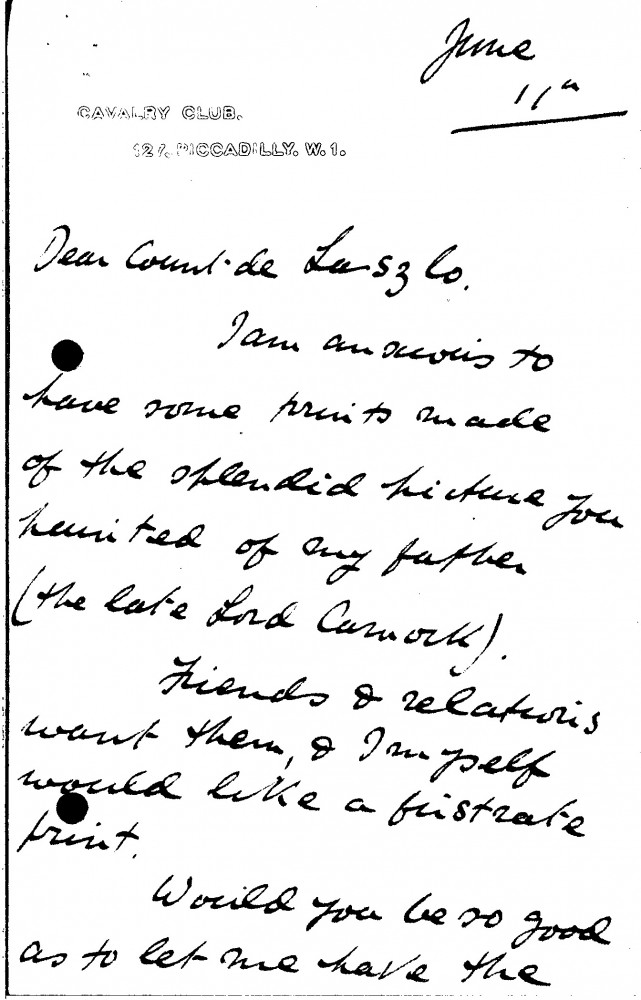 June
11th
CAVALRY CLUB.
127, PICCADILLY. W. 1.
Dear Count de Laszlo.
I am anxious to
have some prints made
of the splendid picture you
painted of my father
(the late Lord Carnock).
Friends & relations
want them, & I myself
would like a firstrate
print.
Would you be so good
as to let me have the